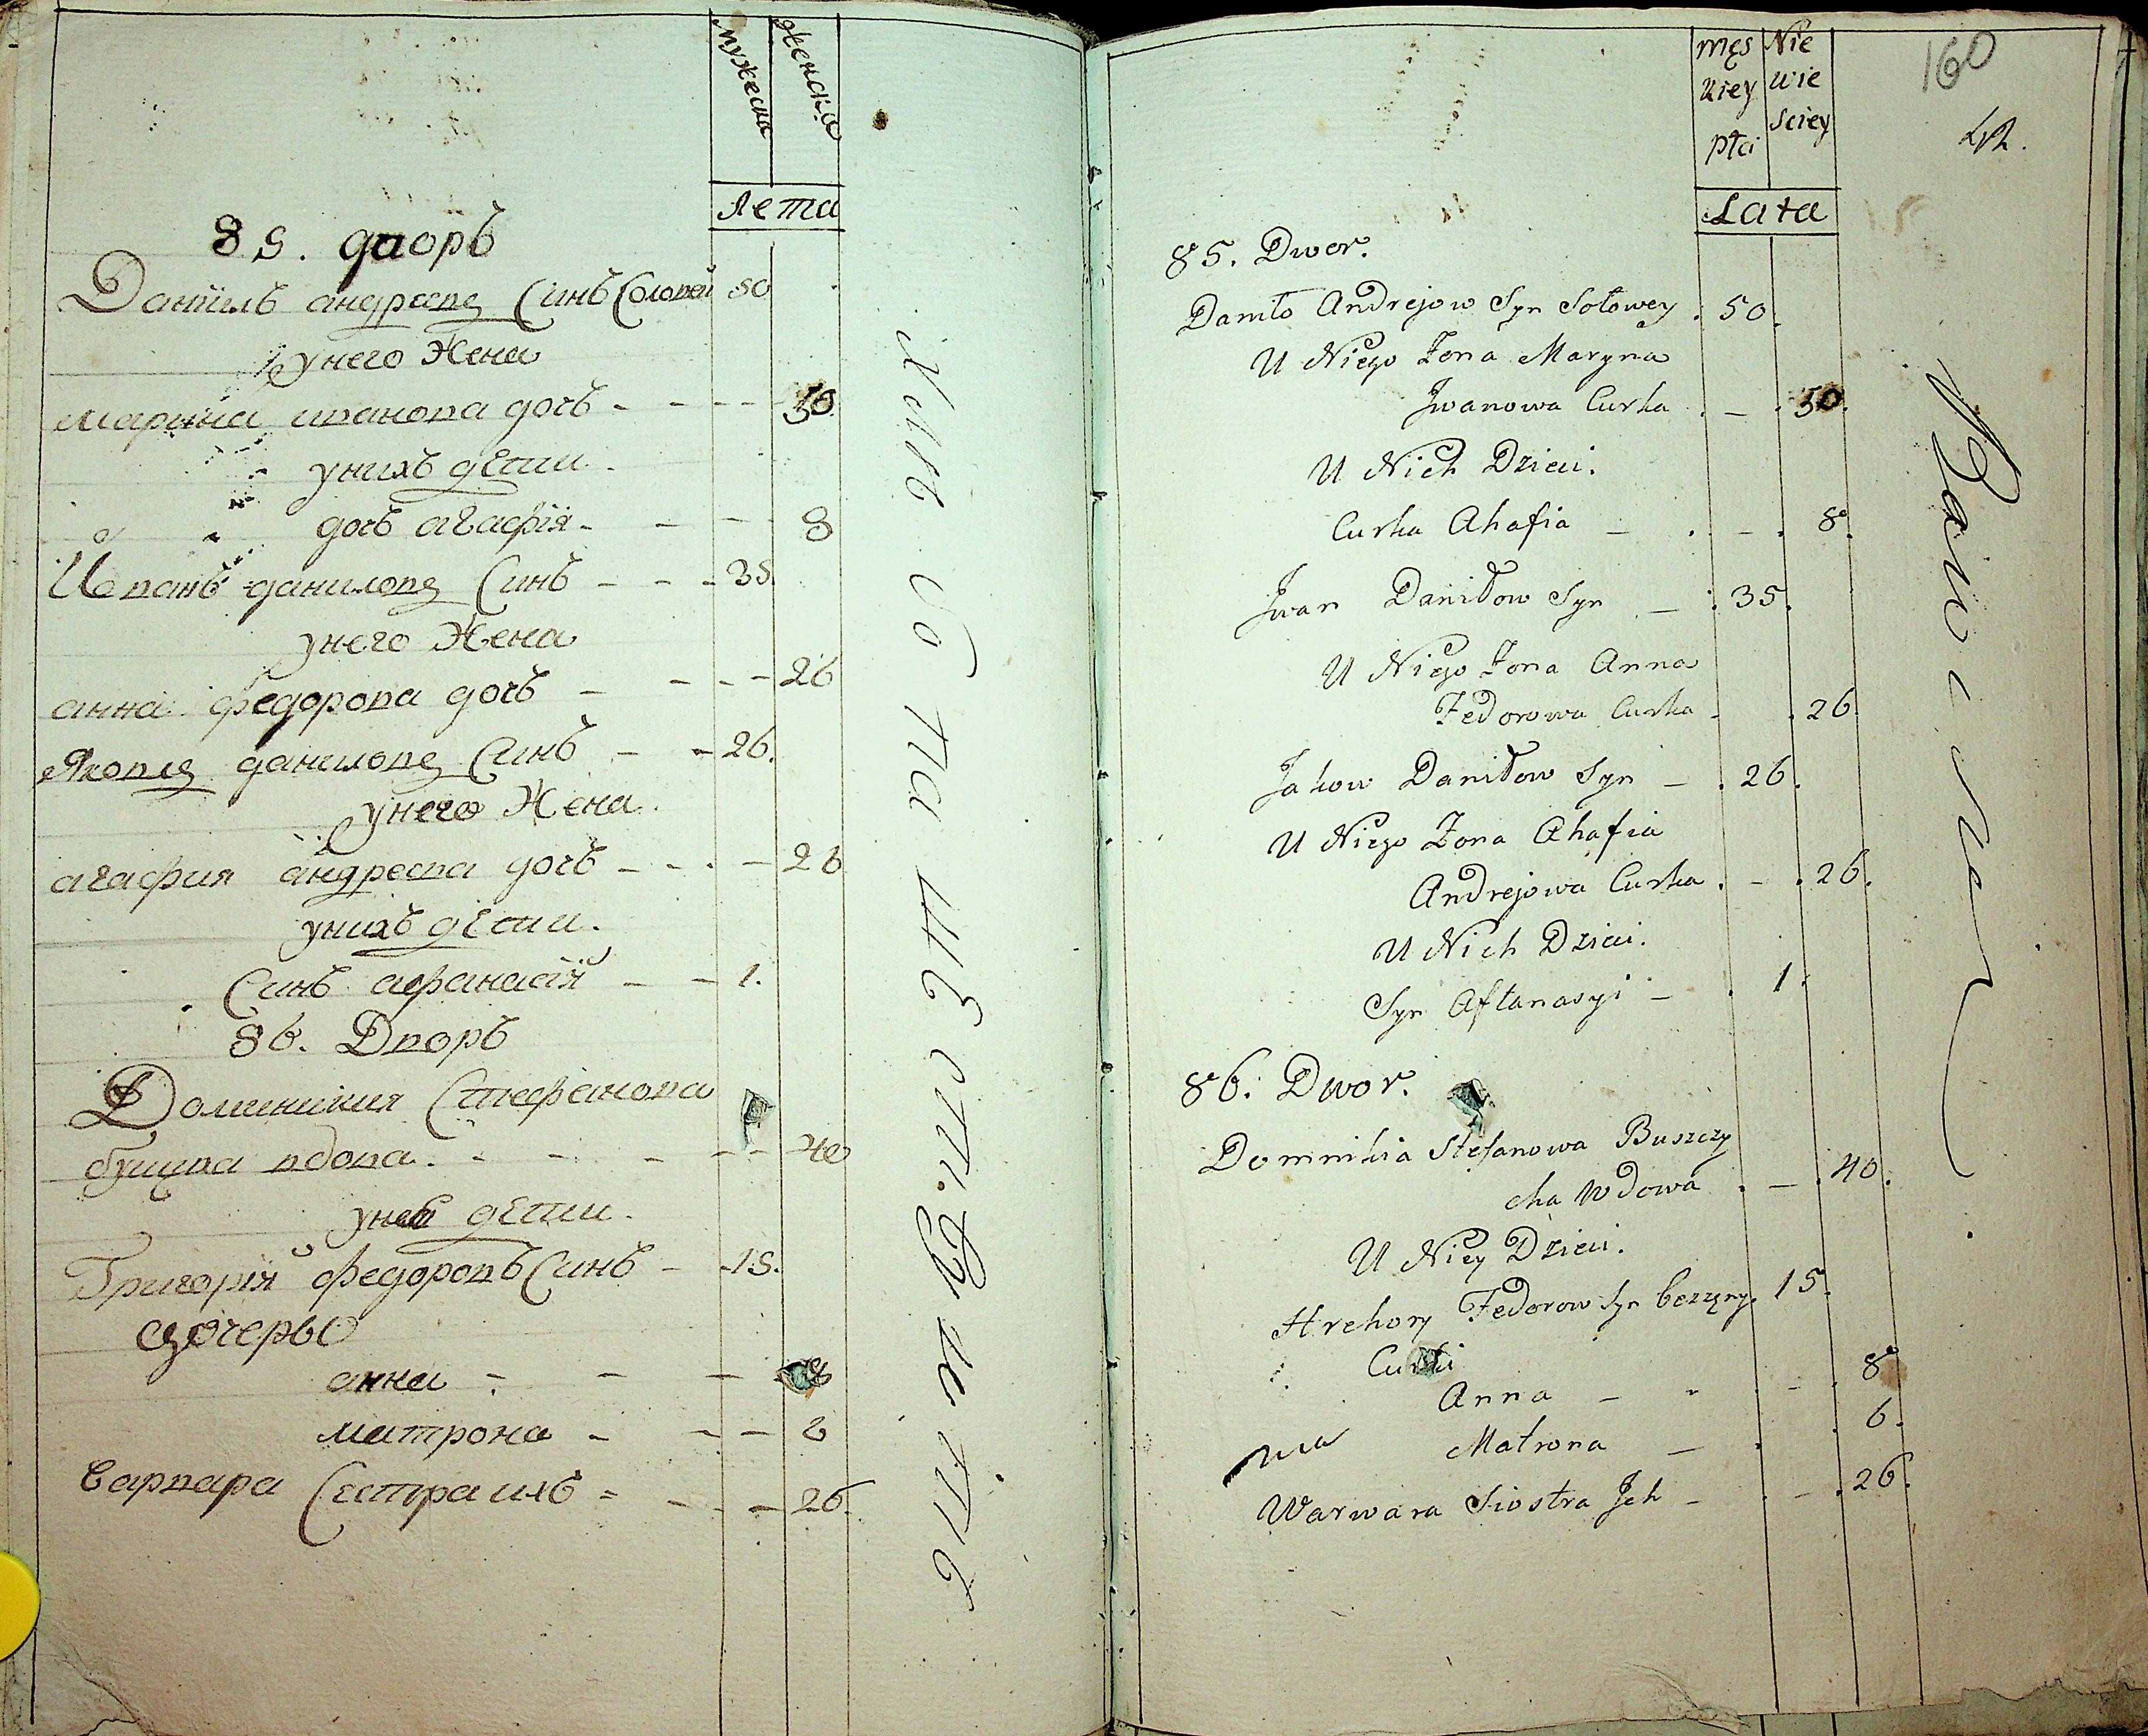 мужеска
женска
Лета
85. дворъ
Данїилъ андреевъ Синъ Соловей 50
унего Жена
марина иванова дочь - - - - 50
унихъ дѣти
дочь агафїя - - - 8
Иванъ даниловъ Синъ - - - 35
унего Жена
анна федорова дочь - - - - 26
Яковъ даниловъ Синъ - - 26.
унего Жена
агафия андреева дочь - - - - 26
унихъ дѣти.
Синъ афанасїй - - 1.
86. Дворъ
Доминикия Стефанова
бущва вдова - - - - - 40
унея дѣти.
Григорїй Федоровъ Синъ - 15.
дочеры
анна - - - 8
матрона - - - 6
Варвара Сестра ихъ - - - 26.
męs Nie
kiey wie
płci sciey
Lata
160
85. Dwor.
Daniło Andrejow Syn Sołowey . 50.
U Niego Żona Maryna
Jwanowa Curka . - . 50.
U Nich Dzieci.
Curka Ahafia - . - . 8.
Jwan Daniłow Syn - . 35.
U Niego Żona Anna
Fedorowa Curka - . 26.
Jakow Daniłow Syn - . 26.
U Niego Żona Ahafia
Andrejowa Curka . - . 26.
U Nich Dzieci.
Syn Aftanasyi - . 1.
86. Dwor.
Dominikia Stefanowa Buszczy
cha Wdowa . - . 40.
U Niey Dzieci.
Hrehory Fedorow Syn bezzęny. 15.
Curki
Anna - - . - . 8
Matrona - . . 6.
Warwara Siostra Jch - . - . 26.